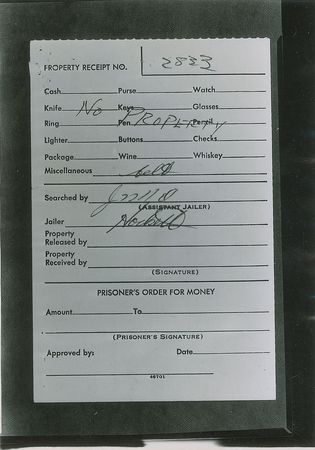 PROPERTY RECEIPT NO. 2833
Cash Purse Watch
Knife Keys Glasses
No PROPERTY
Ring Pen Pencil
Lighter Buttons Checks
Package Wine Whiskey
Miscellaneous belt
Searched by
(ASSISTANT JAILER)
Jailer
Property
Released by
Property
Received by
(SIGNATURE)
PRISONER'S ORDER FOR MONEY
Amount To
(PRISONER'S SIGNATURE)
Approved by: Date
46701